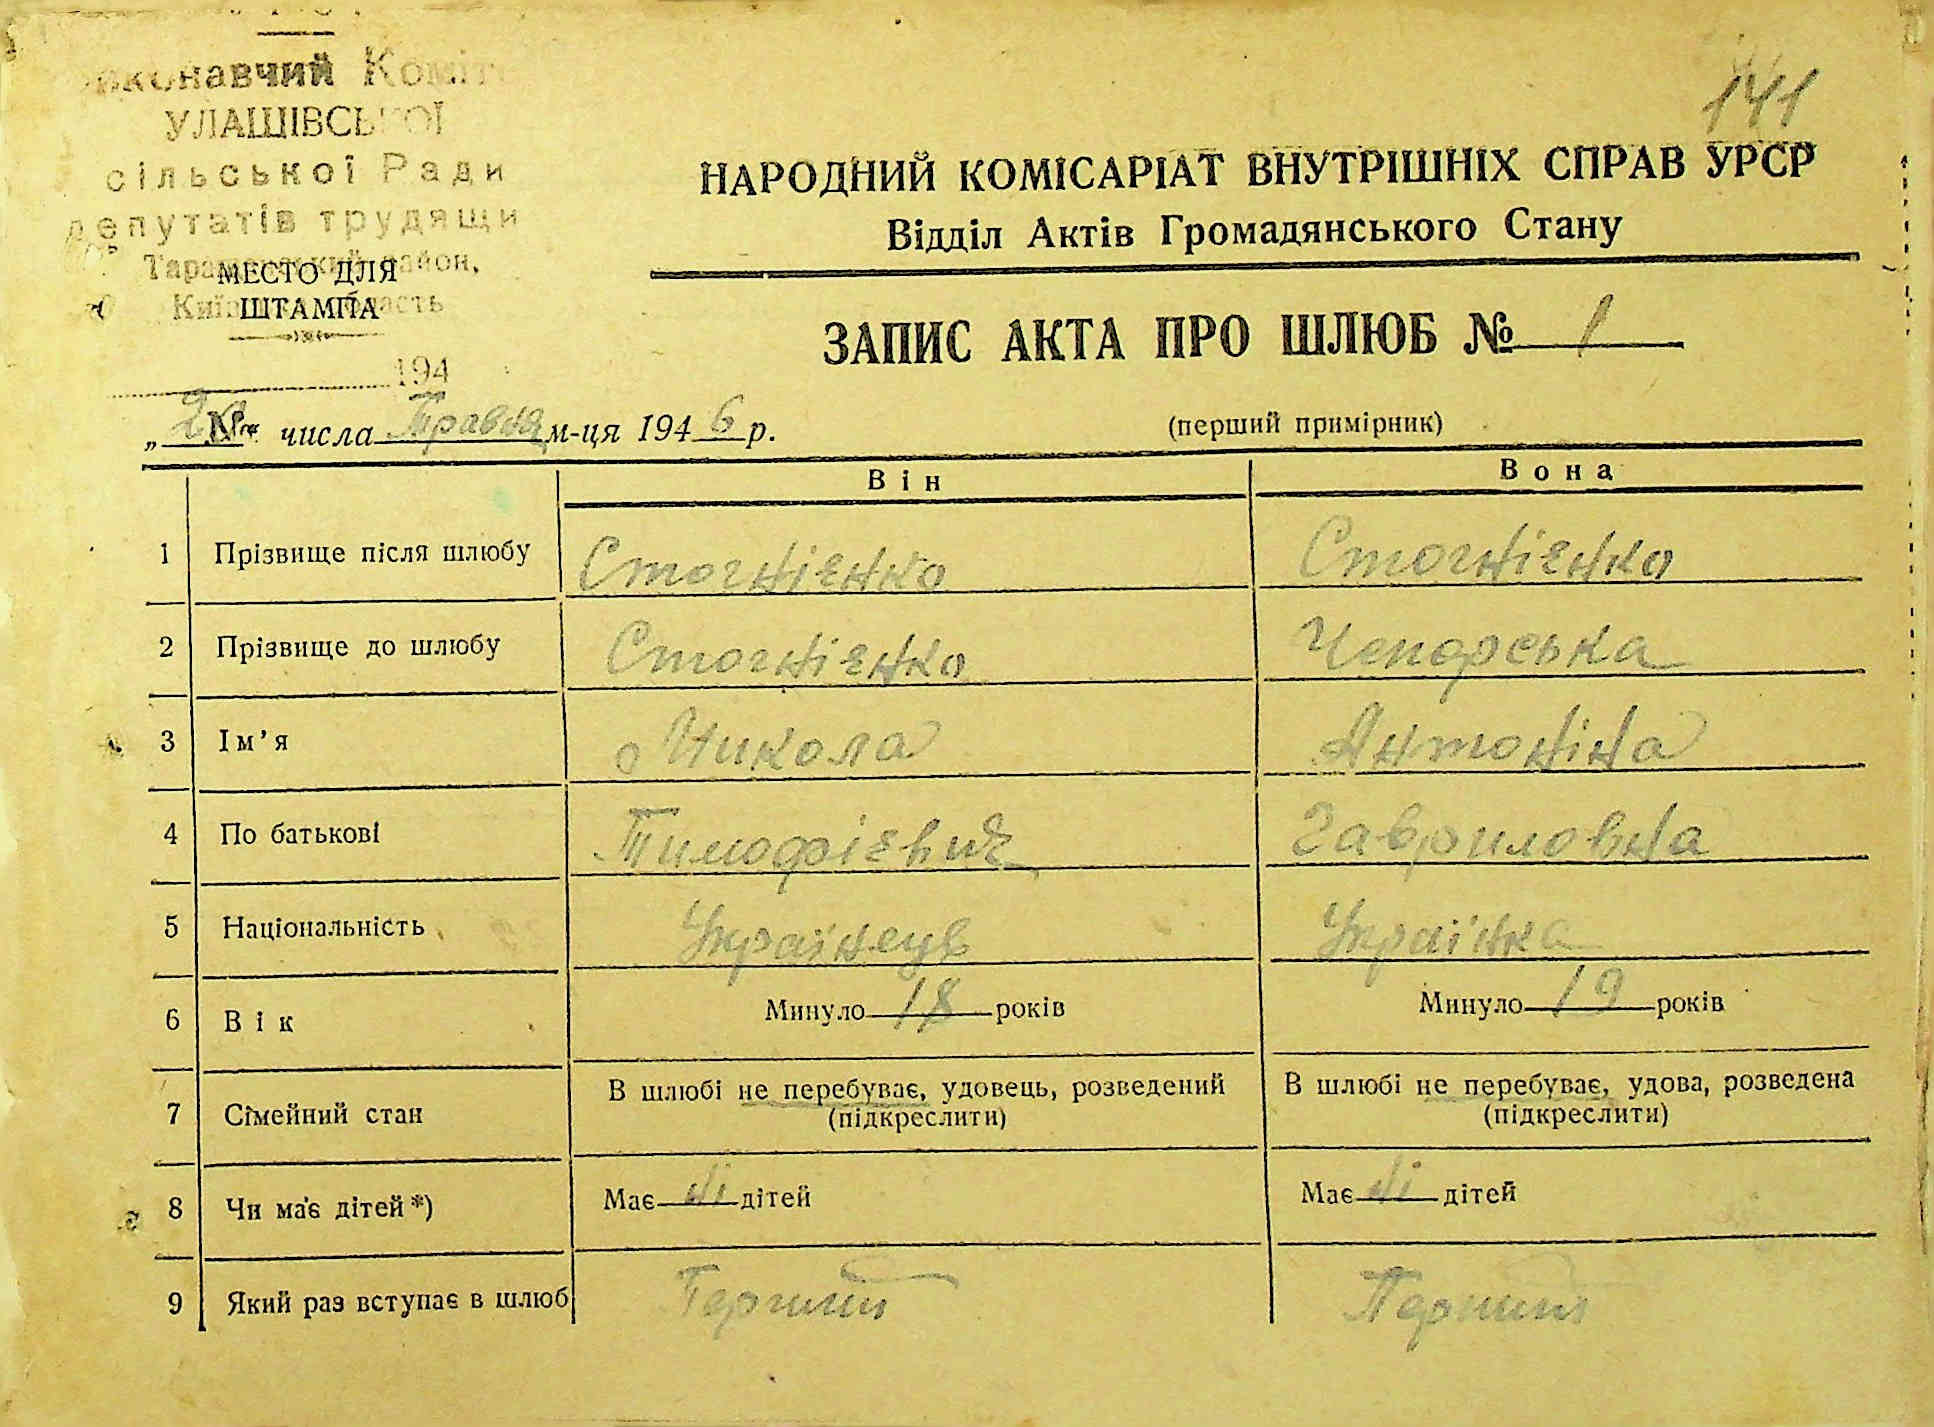 141
Виконавчий Коміт
УЛАШІВСЬКОЇ
сільської Ради
депутатів трудящи
Таращанський район,
Київська область
МЕСТО ДЛЯ
ШТАМПА
194
НАРОДНИЙ КОМІСАРІАТ ВНУТРІШНІХ СПРАВ УРСР
Відділ Актів Громадянського Стану
ЗАПИС АКТА ПРО ШЛЮБ № 1
(перший примірник)
„2" числа Травня м-ця 1946 р.
Він Вона
1 Прізвище після шлюбу Стогнієнко Стогнієнко
2 Прізвище до шлюбу Стогнієнко Чепорська
3 Ім'я Микола Антоніна
4 По батькові Тимофієвич Гавриловна
5 Національність Українець Українка
6 Вік Минуло 18 років Минуло 19 років
7 Сімейний стан В шлюбі не перебуває, удовець, розведений В шлюбі не перебуває, удова, розведена
(підкреслити) (підкреслити)
8 Чи має дітей *) Має ні дітей Має ні дітей
9 Який раз вступає в шлюб Перший Перший